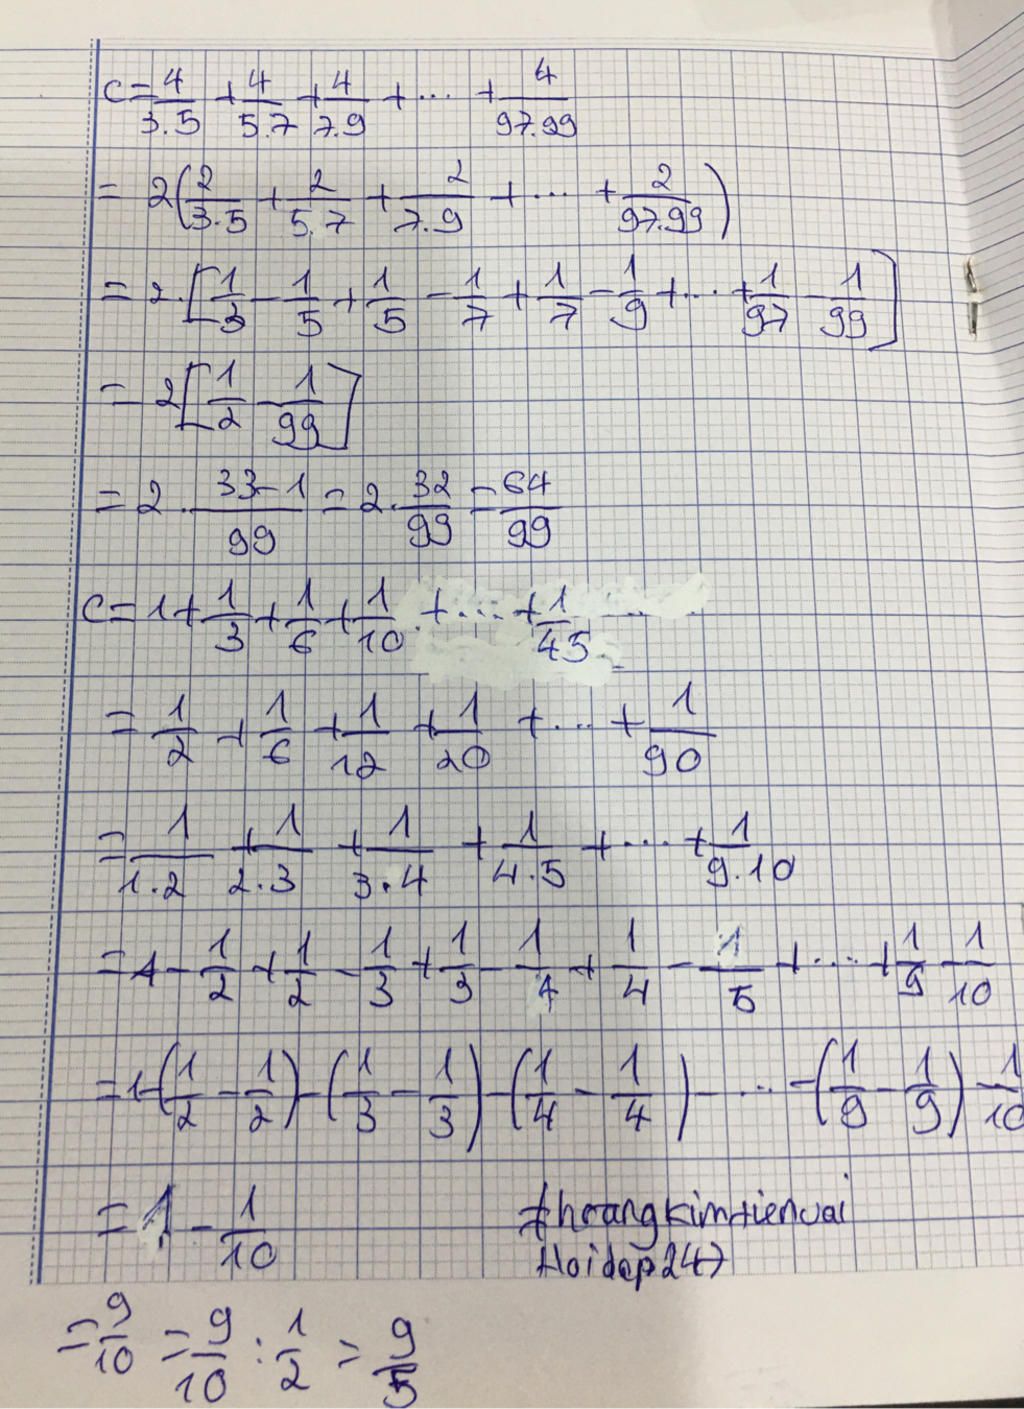 C = 4/3.5 + 4/5.7 + 4/7.9 + ... + 4/97.99
= 2(2/3.5 + 2/5.7 + 2/7.9 + ... + 2/97.99)
= 2.[1/3 - 1/5 + 1/5 - 1/7 + 1/7 - 1/9 + ... + 1/97 - 1/99]
= 2[1/2 - 1/99]
= 2 . 33-1/99 = 2. 32/99 = 64/99
C = 1 + 1/3 + 1/6 + 1/10 + ... + 1/45
= 1/2 + 1/6 + 1/12 + 1/20 + ... + 1/90
= 1/1.2 + 1/2.3 + 1/3.4 + 1/4.5 + ... + 1/9.10
= 1 - 1/2 + 1/2 - 1/3 + 1/3 - 1/4 + 1/4 - 1/5 + ... + 1/9 - 1/10
= 1-(1/2 - 1/2)-(1/3 - 1/3)-(1/4 - 1/4)- ... -(1/9 - 1/9) - 1/10
= 1 - 1/10
#hoangkimtienvai
Hoidap247
= 9/10 = 9/10 : 1/2 = 9/5